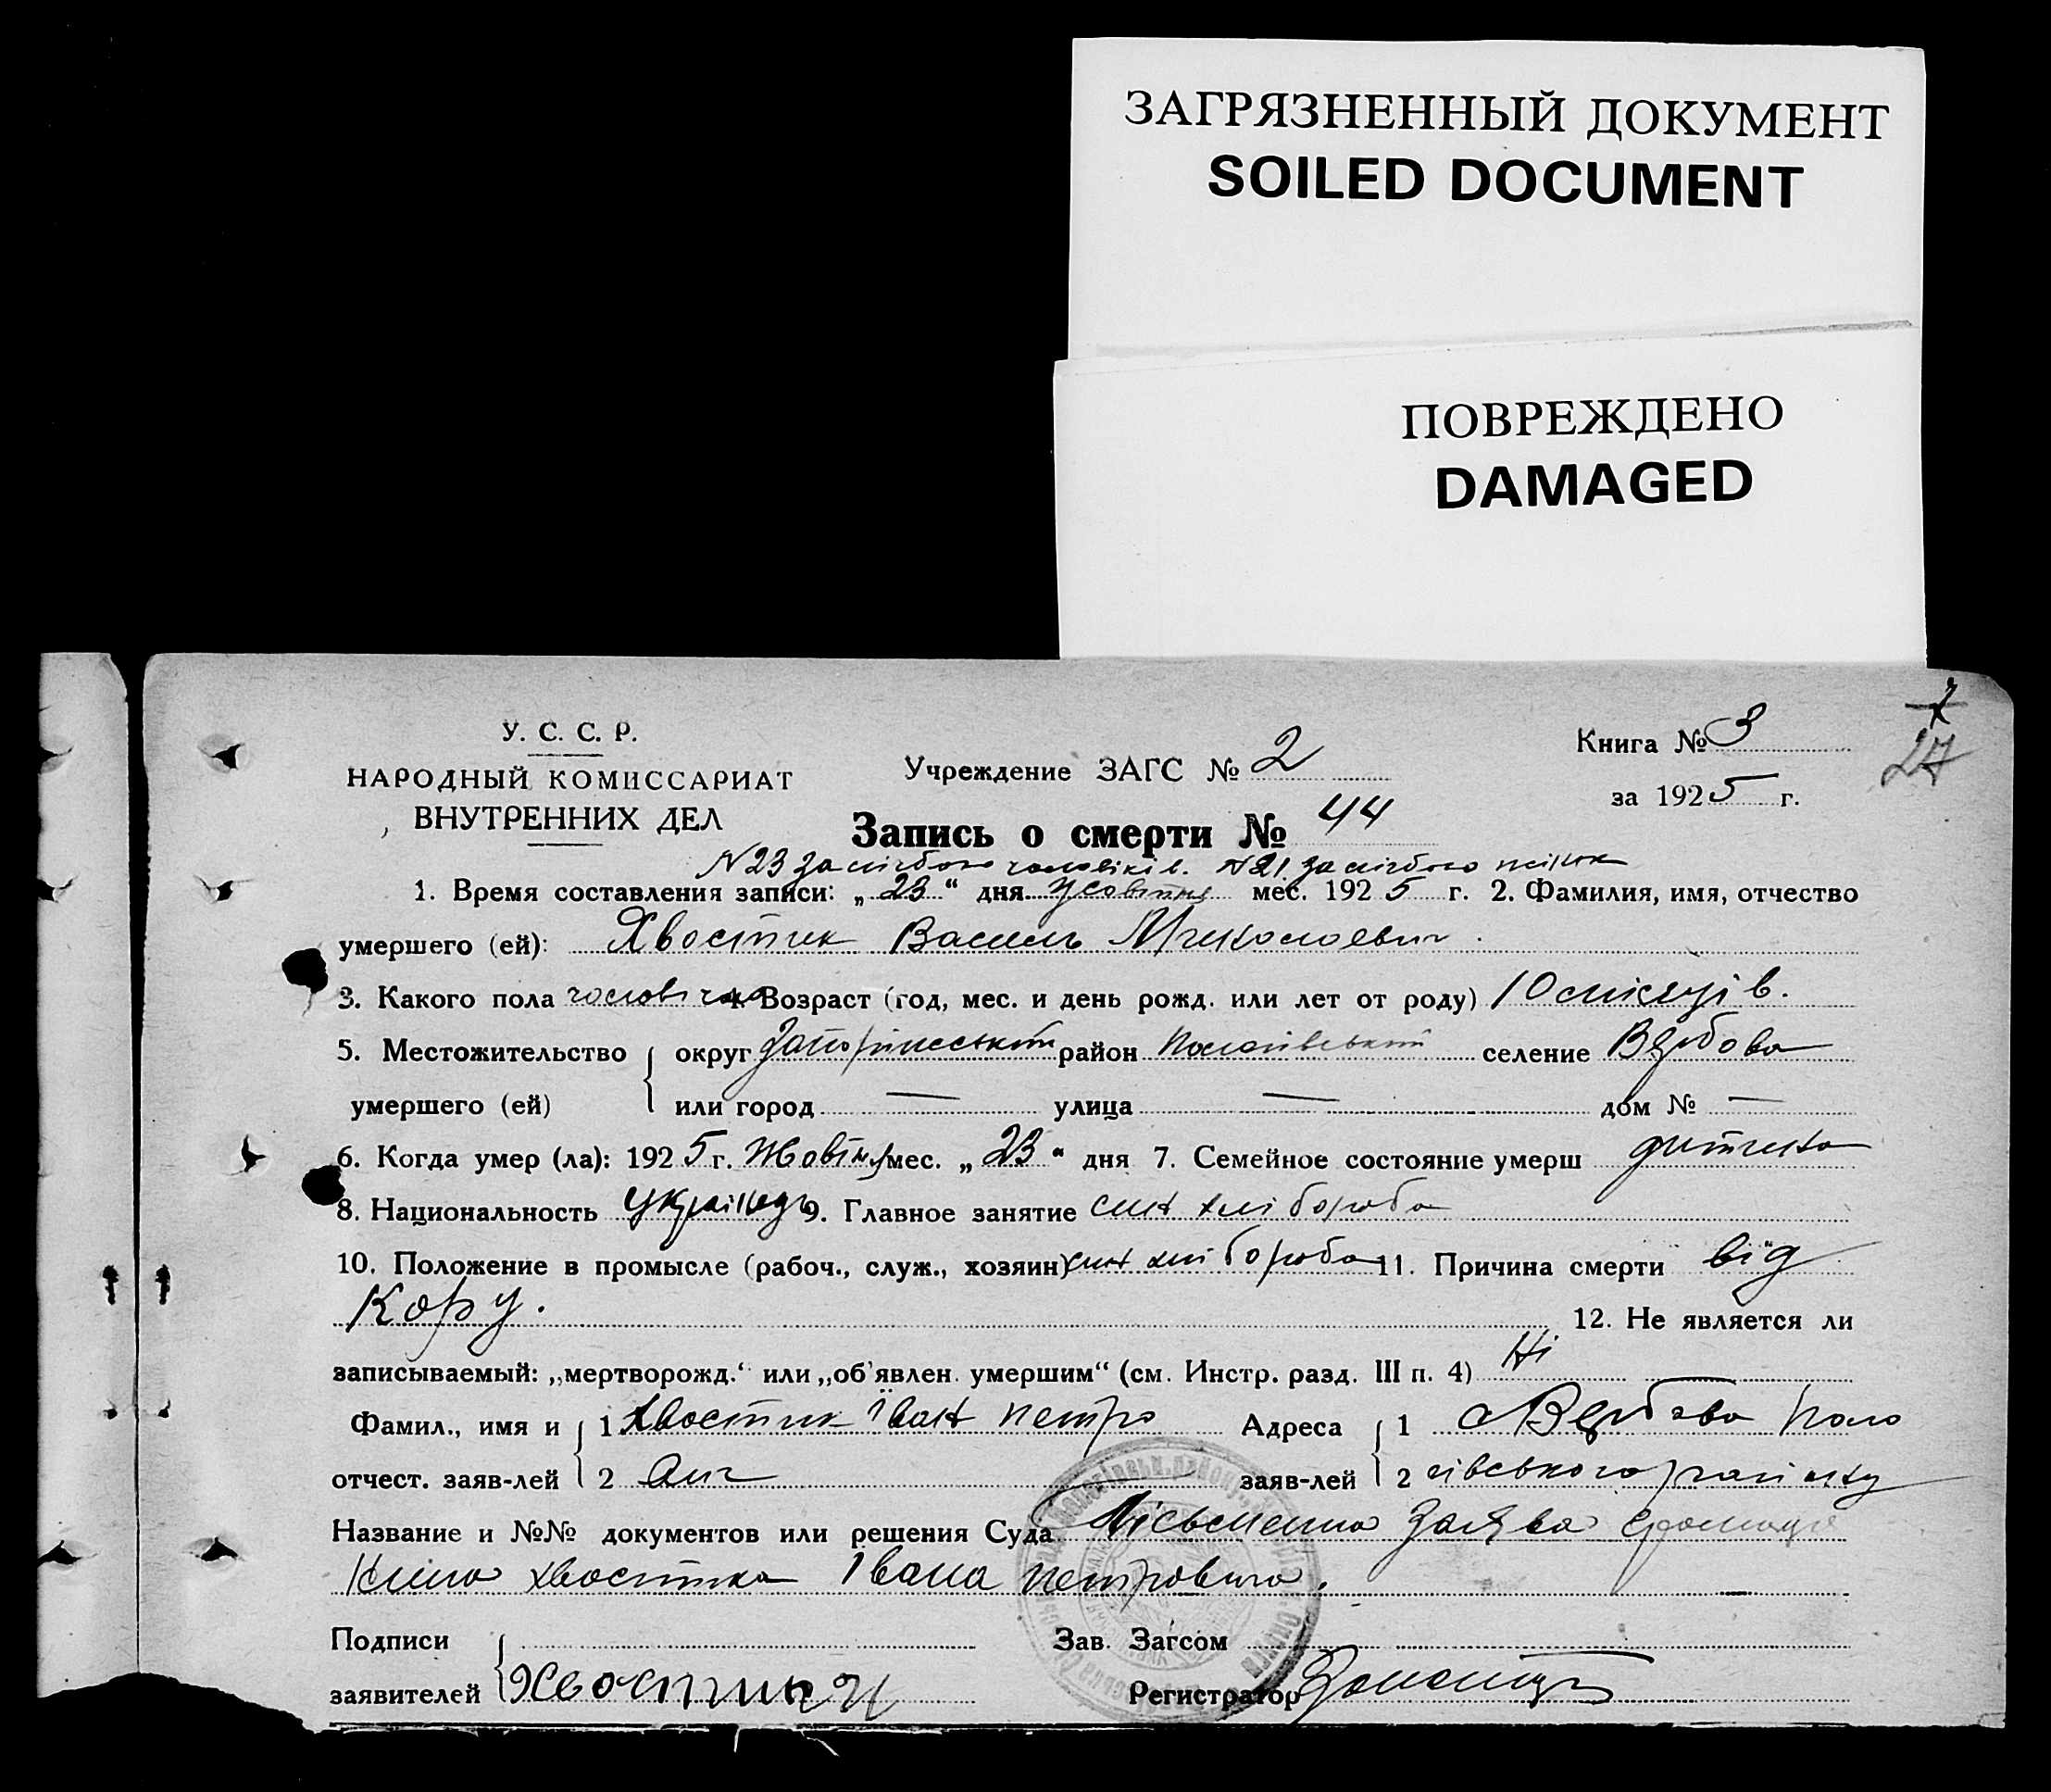 ЗАГРЯЗНЕННЫЙ ДОКУМЕНТ
SOILED DOCUMENT
ПОВРЕЖДЕНО
DAMAGED
У. С. С. Р.
НАРОДНЫЙ КОМИССАРИАТ
ВНУТРЕННИХ ДЕЛ
Учреждение ЗАГС № 2
Книга № 3
за 1925 г.
27
Запись о смерти № 44
N 23 за чоловіків. N 21 за жінок
1. Время составления записи: „23“ дня Жовтня мес. 1925 г. 2. Фамилия, имя, отчество
умершего (ей): Хвостик Василь Миколаевич.
3. Какого пола чоловіча 4. Возраст (год, мес. и день рожд. или лет от роду) 10 місяців.
5. Местожительство округ Запоріжський район Пологівський селение Вербова
умершего (ей) или город — улица — дом № —
6. Когда умер (ла): 1925 г. Жовтня мес. „23“ дня 7. Семейное состояние умерш дитина
8. Национальность Українець 9. Главное занятие син хлібороба
10. Положение в промысле (рабоч., служ., хозяин) син хлібороба 11. Причина смерти від
Кору. 12. Не является ли
записываемый: „мертворожд.“ или „об'явлен. умершим“ (см. Инстр. разд. III п. 4) Ні
Фамил., имя и 1 Хвостик Іван Петро Адреса 1 с Вербова Поло
отчест. заяв-лей 2 вич заяв-лей 2 гівського району
Название и №№ документов или решения Суда Письменна Заява громадя
нина Хвостика Івана Петровича.
Подписи Зав. Загсом
заявителей Хвостик И Регистратор